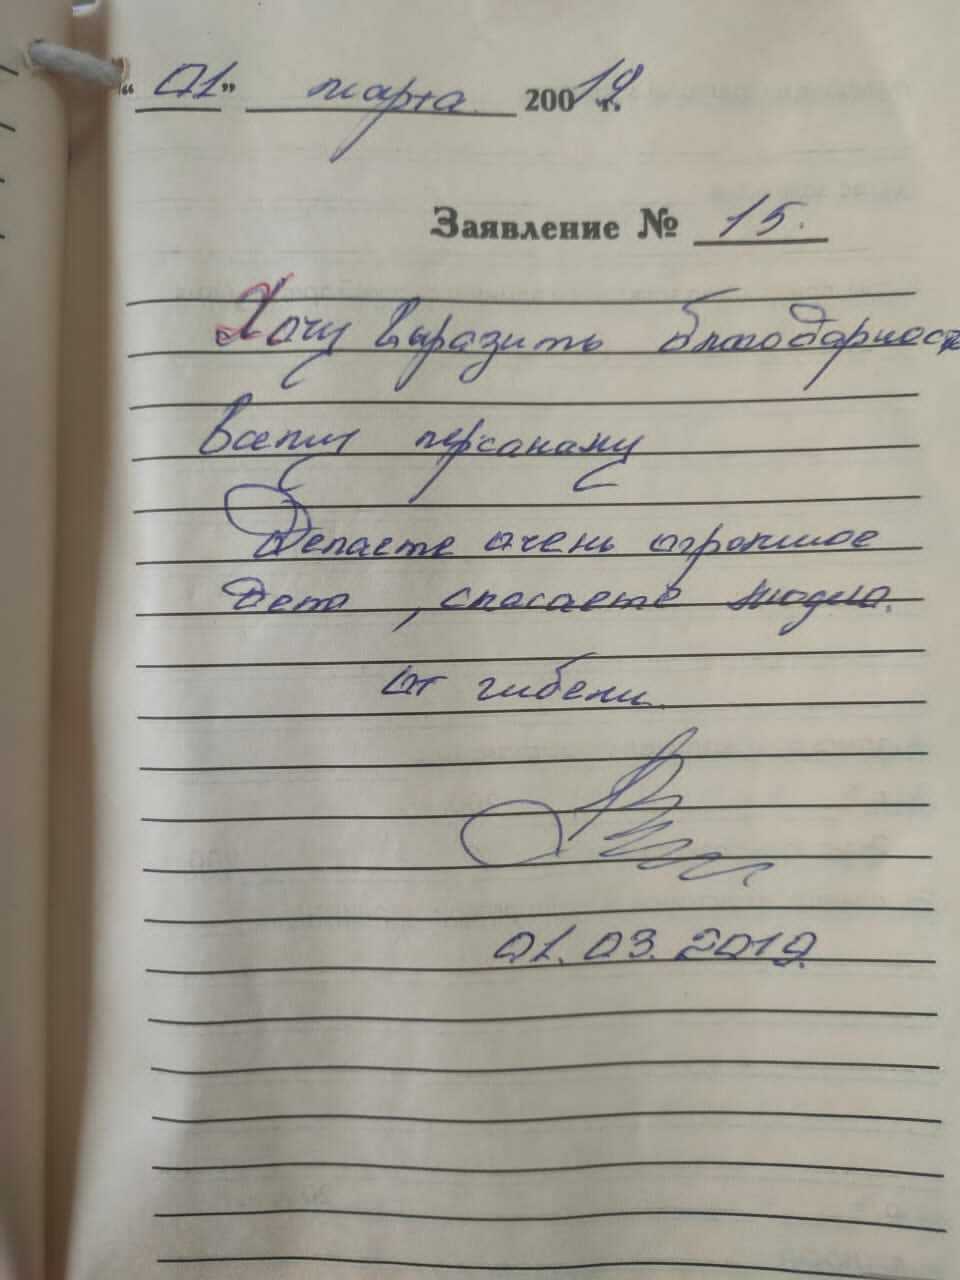 “01” марта 20019 г.
Заявление № 15.
Хочу выразить благодарность
Всему персаналу
Делаете очень огромное
дело, спасаете людей.
от гибели.
01.03.2019.